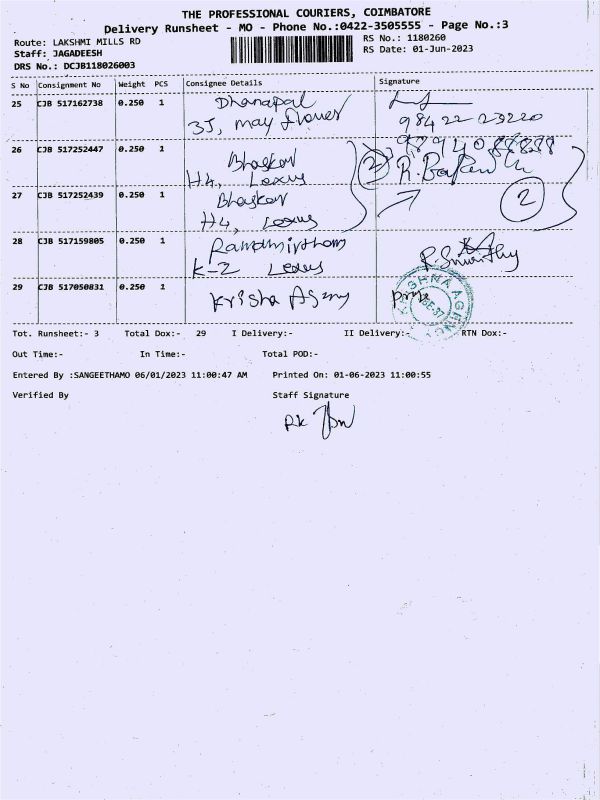 THE PROFESSIONAL COURIERS, COIMBATORE
Delivery Runsheet - MO - Phone No.:0422-3505555 - Page No.:3
Route: LAKSHMI MILLS RD RS No.: 1180260
Staff: JAGADEESH RS Date: 01-Jun-2023
DRS No.: DCJB118026003
S No Consignment No Weight PCS Consignee Details Signature
25 CJB 517162738 0.250 1 Dhanapal
3J, may flower 98422 23220
26 CJB 517252447 0.250 1 Bhaskar 2
H4, Lexus
27 CJB 517252439 0.250 1 Bhaskar 2
H4, Lexus
28 CJB 517159805 0.250 1
K-2 Lexus
29 CJB 517050831 0.250 1 Krisha
Tot. Runsheet:- 3 Total Dox:- 29 I Delivery:- II Delivery:- RTN Dox:-
Out Time:- In Time:- Total POD:-
Entered By :SANGEETHAMO 06/01/2023 11:00:47 AM Printed On: 01-06-2023 11:00:55
Verified By Staff Signature